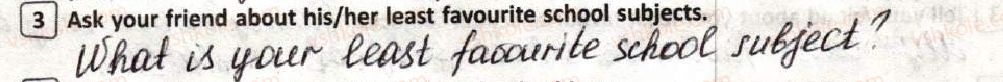 3 Ask your friend about his/her least favourite school subjects.
What is your least favourite school subject?